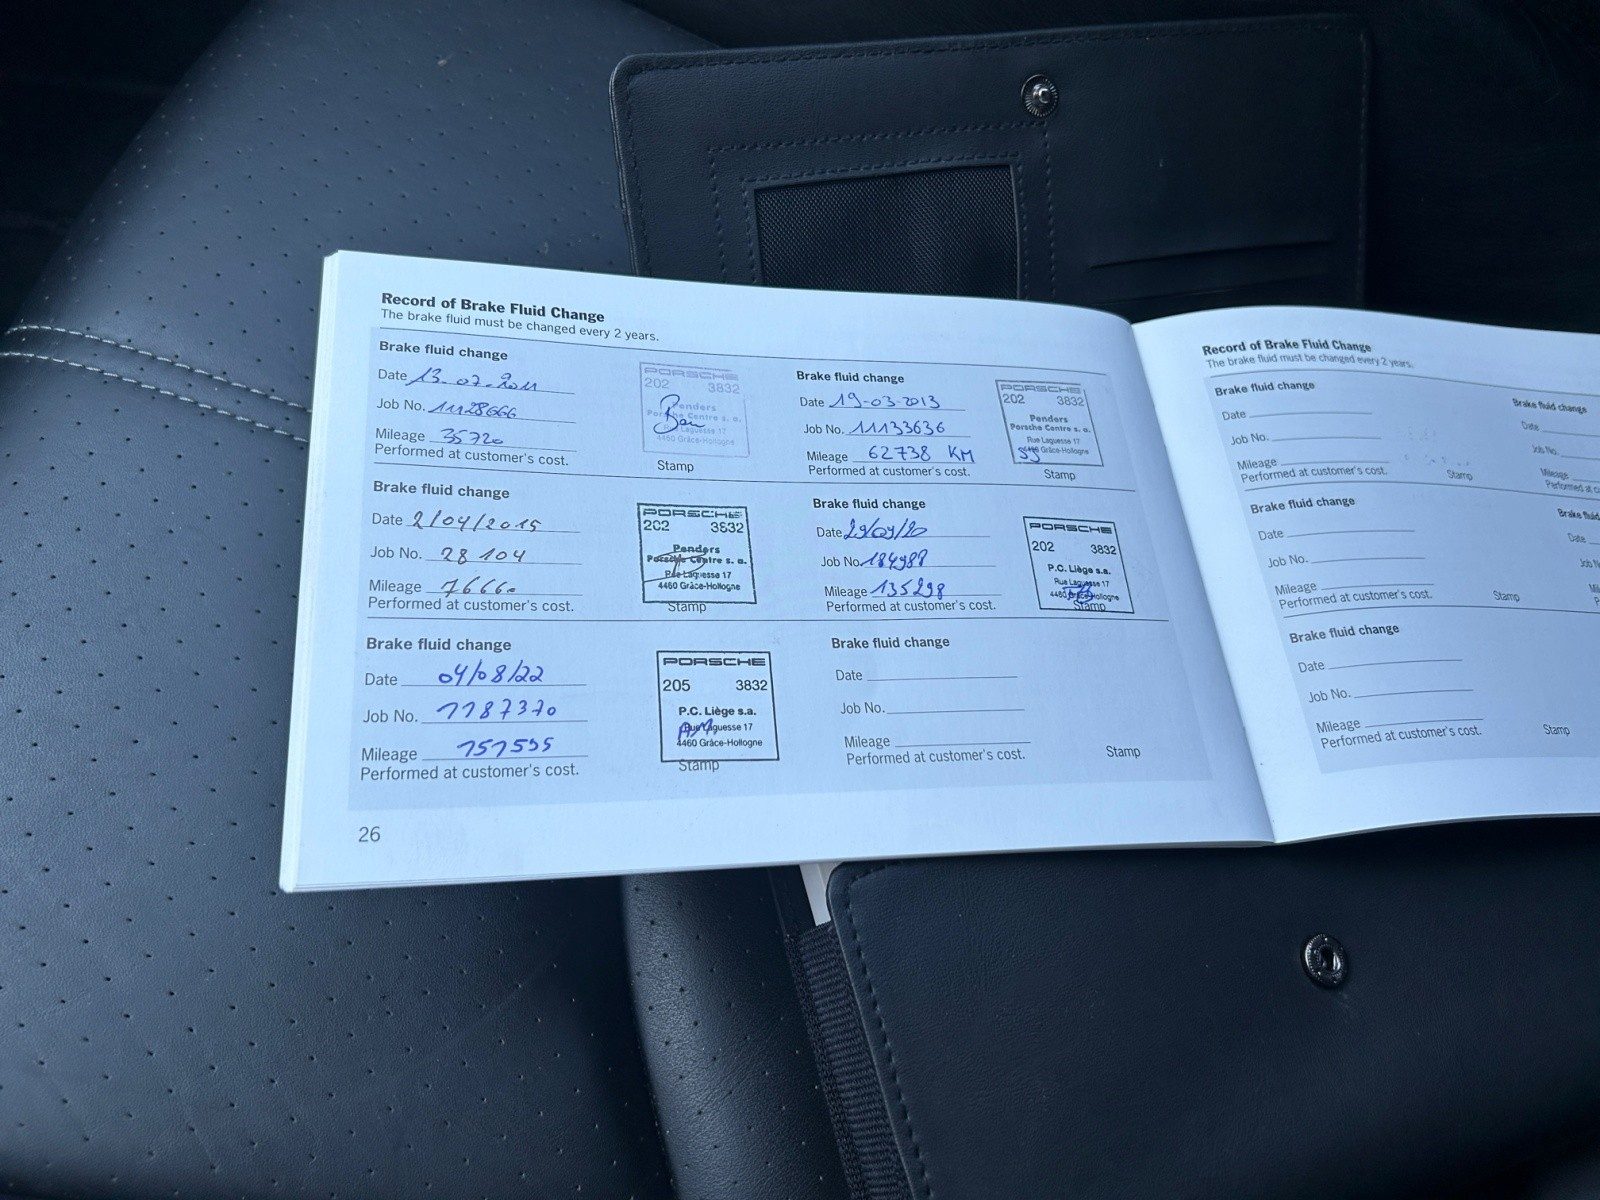 Record of Brake Fluid Change
The brake fluid must be changed every 2 years.
Brake fluid change
Date 13-07-2011
Job No. 11128666
Mileage 35720
Performed at customer's cost.
PORSCHE
202 3832
Penders
Porsche Centre s. a.
Rue Laguesse 17
4460 Grâce-Hollogne
Stamp
Brake fluid change
Date 19-03-2013
Job No. 11133636
Mileage 62738 KM
Performed at customer's cost.
PORSCHE
202 3832
Penders
Porsche Centre s. a.
Rue Laguesse 17
4460 Grâce-Hollogne
Stamp
Brake fluid change
Date 2/04/2015
Job No. 28104
Mileage 76660
Performed at customer's cost.
PORSCHE
202 3832
Penders
Porsche Centre s. a.
Rue Laguesse 17
4460 Grâce-Hollogne
Stamp
Brake fluid change
Date 29/09/20
Job No. 184988
Mileage 135298
Performed at customer's cost.
PORSCHE
202 3832
P.C. Liège s.a.
Rue Laguesse 17
4460 Grâce-Hollogne
Stamp
Brake fluid change
Date 04/08/22
Job No. 1187370
Mileage 151595
Performed at customer's cost.
PORSCHE
205 3832
P.C. Liège s.a.
Rue Laguesse 17
4460 Grâce-Hollogne
Stamp
Brake fluid change
Date
Job No.
Mileage
Performed at customer's cost.
Stamp
26
Record of Brake Fluid Change
The brake fluid must be changed every 2 years.
Brake fluid change
Date
Job No.
Mileage
Performed at customer's cost.
Stamp
Brake fluid change
Date
Job No.
Mileage
Performed at
Brake fluid change
Date
Job No.
Mileage
Performed at customer's cost.
Stamp
Brake fluid
Date
Brake fluid change
Date
Job No.
Mileage
Performed at customer's cost.
Stamp
Brake
Date